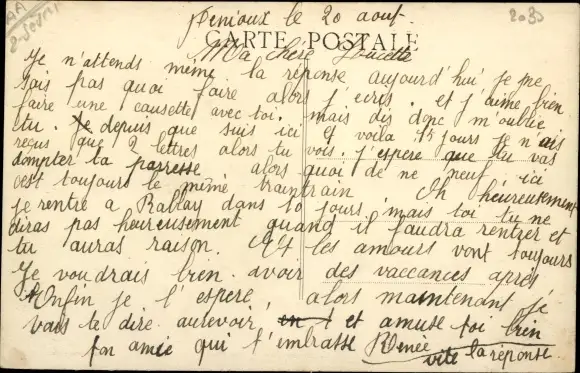 Penioux le 20 aout.
2030
CARTE POSTALE
Ma chère
Je n'attends même la reponse aujourd'hui je ne
sais pas quoi faire alors j'ecris. et j'aime bien
faire une causette avec toi. mais dis donc m'oublie
tu. Je depuis que suis ici et voila 15 jours je n'ais
reçus que 2 lettres alors tu vois. j'espere que tu vas
dompter ta paresse alors quoi de ne neuf, ici
c'est toujours le même traintrain. Oh heureusement
je rentre a Rablay dans 10 jours, mais toi tu ne
diras pas heureusement quand il faudra rentrer et
tu auras raison. Et les amours vont toujours
Je voudrais bien avoir des vaccances après
Enfin je l'espere, alors maintenant je
vais te dire aurevoir, et amuse toi bien
ton amie qui t'embrasse Renée
vite la réponse